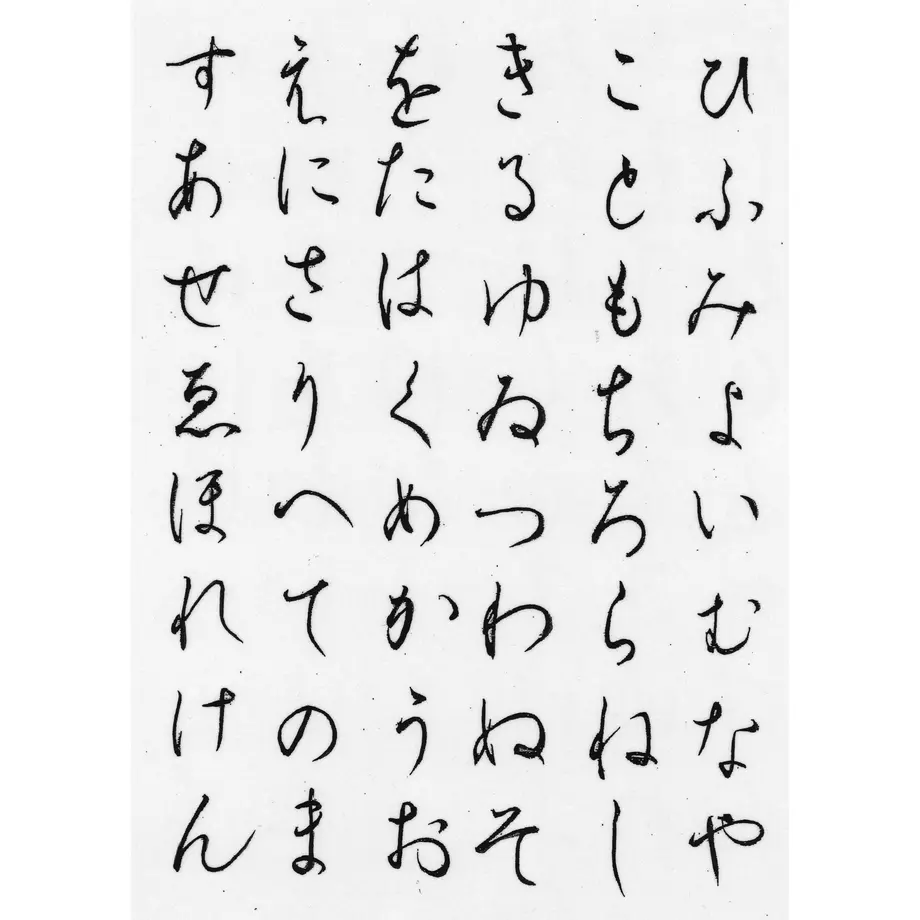 ひふみよいむなや
こともちろらねし
きるゆゐつわぬそ
をたはくめかうお
えにさりへてのま
すあせゑほれけん